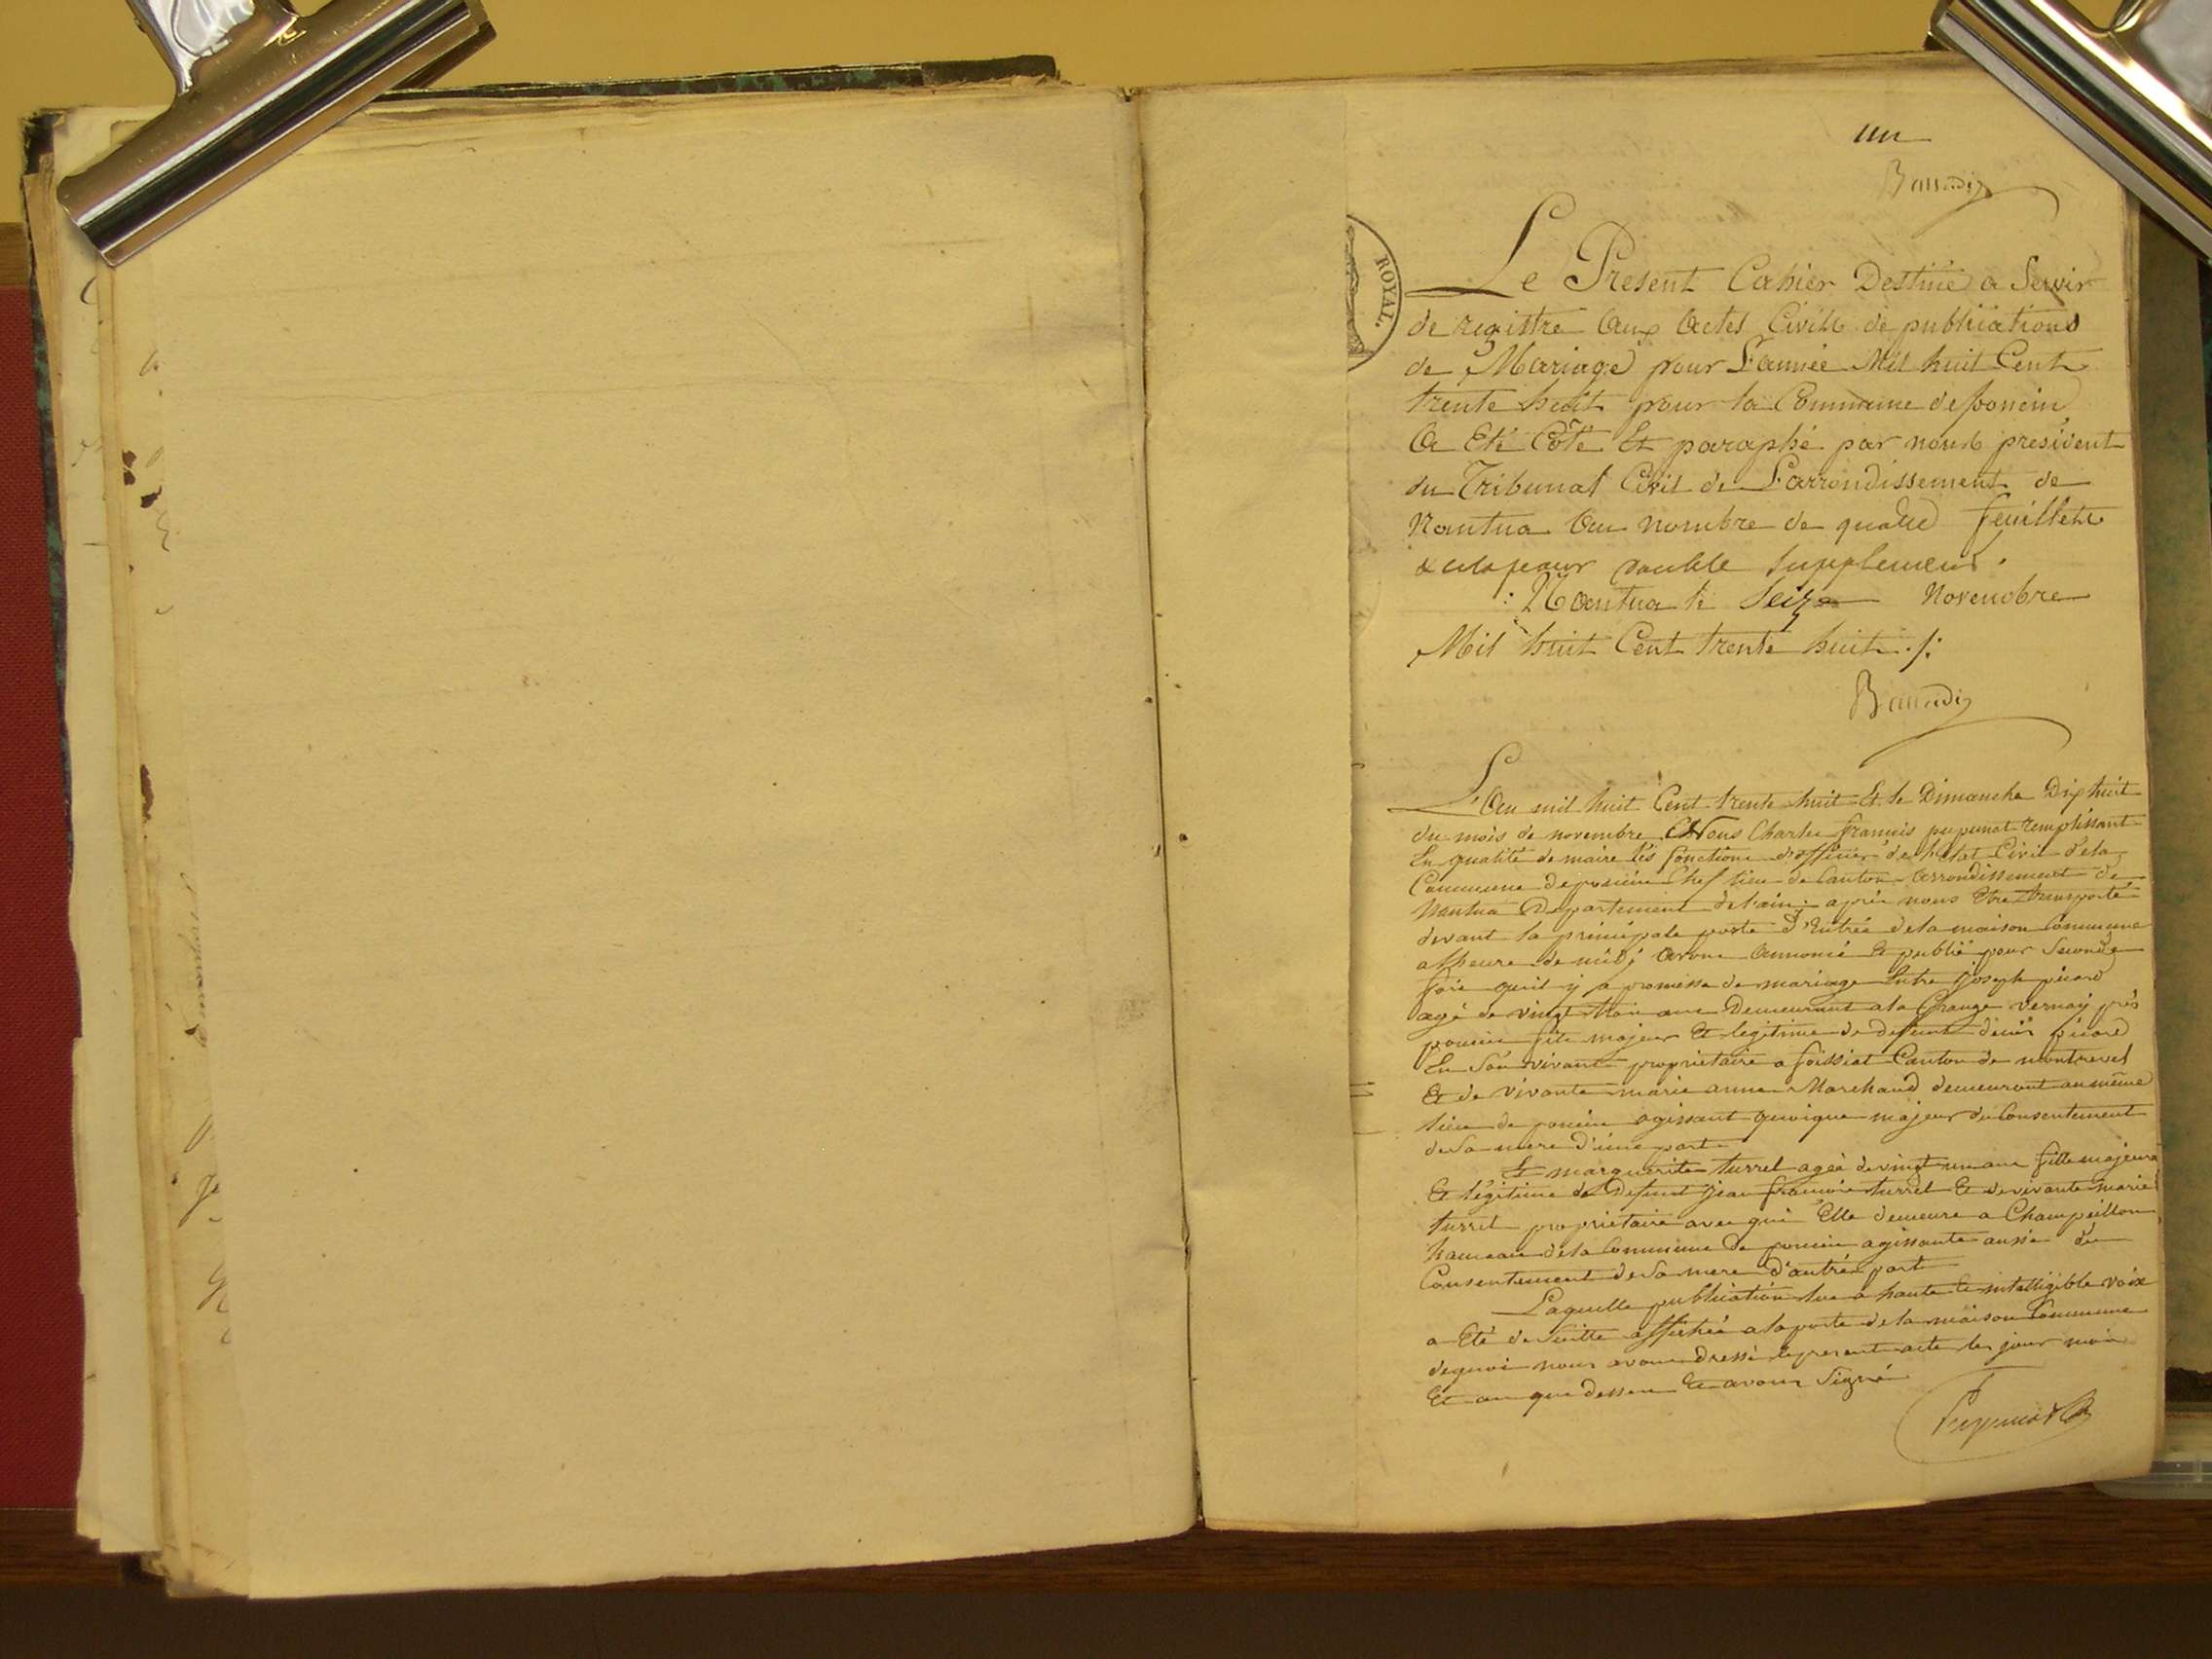 un
Baudin
ROYAL.
Le Present Cahier Destiné a Servir
de registre Aux Actes Civils de publications
de Mariage pour L'année Mil huit Cent
trente huit pour la Commune de poncin
A Eté Côté Et paraphé par nous président
du Tribunal Civil de L'arrondissement de
Nantua Au nombre de quatre feuillets
& cela pour double supplement.
Nantua le Seize Novembre
Mil huit Cent trente huit ./.
Baudin
L'An mil huit Cent trente huit Et le Dimanche Dix huit
du mois de novembre Nous Charles françois pupunat remplissant
En qualité de maire les fonctions d'officier de l'état Civil dela
Commune de poncin Chef lieu de Canton Arrondissement de
Nantua Département de l'ain : après nous Etre transporté
devant la principale porte d'Entrée dela maison Commune
a l'heure de midi Avons Annoncé Et publié pour Seconde
fois qu'il y a promesse de mariage Entre joseph picard
agé de vingt trois ans Demeurant a la Grange vernay près
poncin fils majeur Et legitime de defunt denis picard
En Son vivant propriétaire a foissiat Canton de montrevel
Et de vivante marie anne Marchand demeurant au même
lieu de poncin agissant quoique majeur du Consentement
de Sa mere d'une part
Et marguerite turrel ageé de vingt un ans fille majeure
Et légitime de Defunt jean françois turrel Et de vivante marie
turrel propriétaire avec qui Elle demeure a Champeillon
hameau dela Commune de poncin agissante aussi du
Consentement de Sa mere d'autre part
Laquelle publication lue a haute Et intelligible voix
a Eté de Suitte affichée a la porte de la maison Commune
dequoi nous avons Dressé le present acte les jour mois
Et an que dessus Et avons Signé
Pupunat